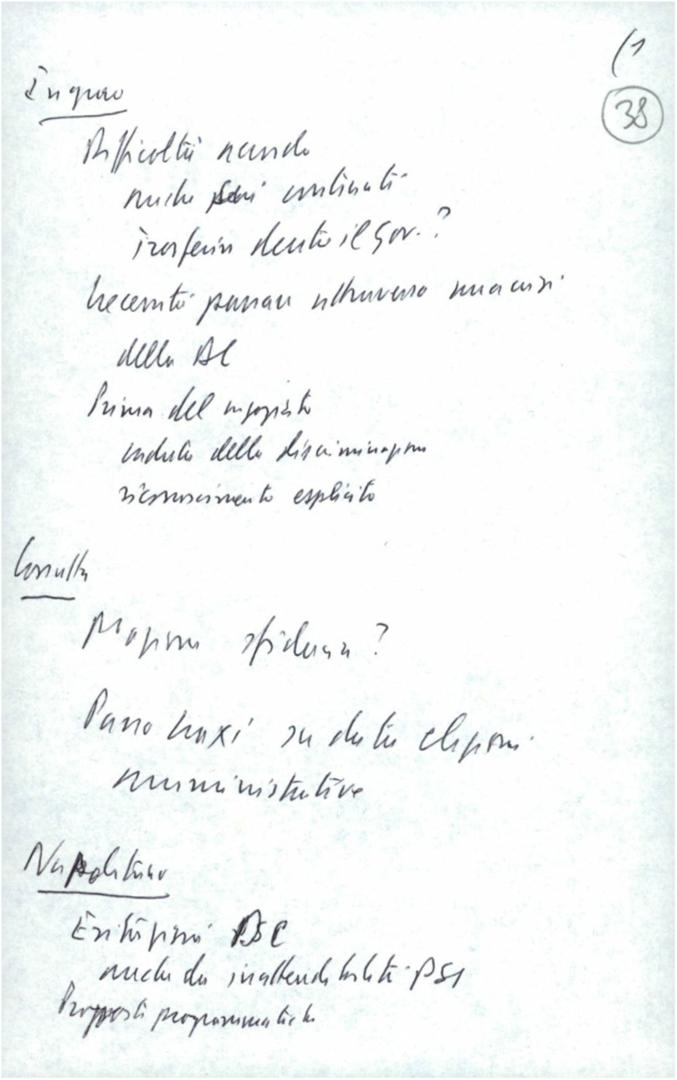 (1
38
Ingrao
Difficoltà quando
anche
trasferir dentro il Gov.?
Necessità passare attraverso una crisi
della DC
Prima del negoziato
caduta della discriminazione
riconoscimento esplicito
Cossutta
Mozione sfiducia?
Passo Craxi su data elezioni
amministrative
Napolitano
Esitazioni DC
anche da inattendibilità PSI
Proposta programmatica